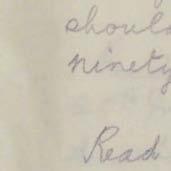 should
ninety
Read